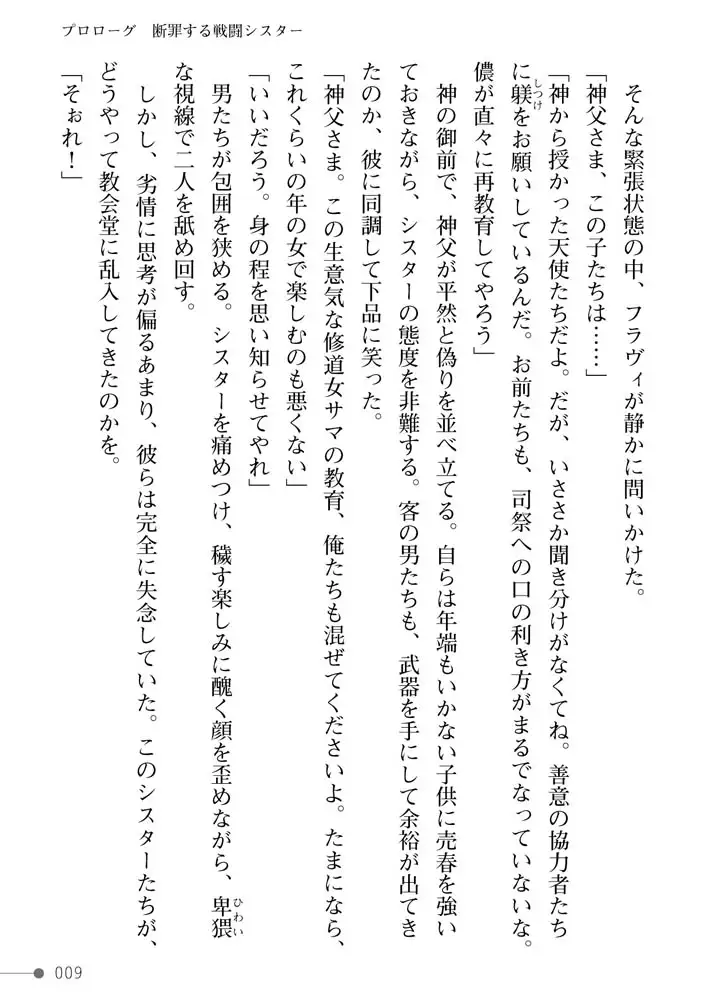 プロローグ　断罪する戦闘シスター
そんな緊張状態の中、フラヴィが静かに問いかけた。
「神父さま、この子たちは……」
「神から授かった天使たちだよ。だが、いささか聞き分けがなくてね。善意の協力者たち
に躾をお願いしているんだ。お前たちも、司祭への口の利き方がまるでなっていないな。
しつけ
儂が直々に再教育してやろう」
神の御前で、神父が平然と偽りを並べ立てる。自らは年端もいかない子供に売春を強い
ておきながら、シスターの態度を非難する。客の男たちも、武器を手にして余裕が出てき
たのか、彼に同調して下品に笑った。
「神父さま。この生意気な修道女サマの教育、俺たちも混ぜてくださいよ。たまになら、
これくらいの年の女で楽しむのも悪くない」
「いいだろう。身の程を思い知らせてやれ」
男たちが包囲を狭める。シスターを痛めつけ、穢す楽しみに醜く顔を歪めながら、卑猥
ひわい
な視線で二人を舐め回す。
しかし、劣情に思考が偏るあまり、彼らは完全に失念していた。このシスターたちが、
どうやって教会堂に乱入してきたのかを。
「そぉれ！」
009